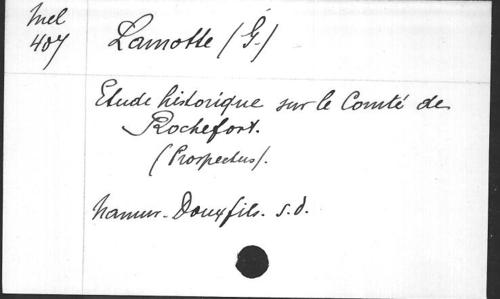 Mel
407
Lamotte (G.)
Etude historique sur le Comté de
Rochefort.
(Prospectus).
Namur - Douxfils. s.d.